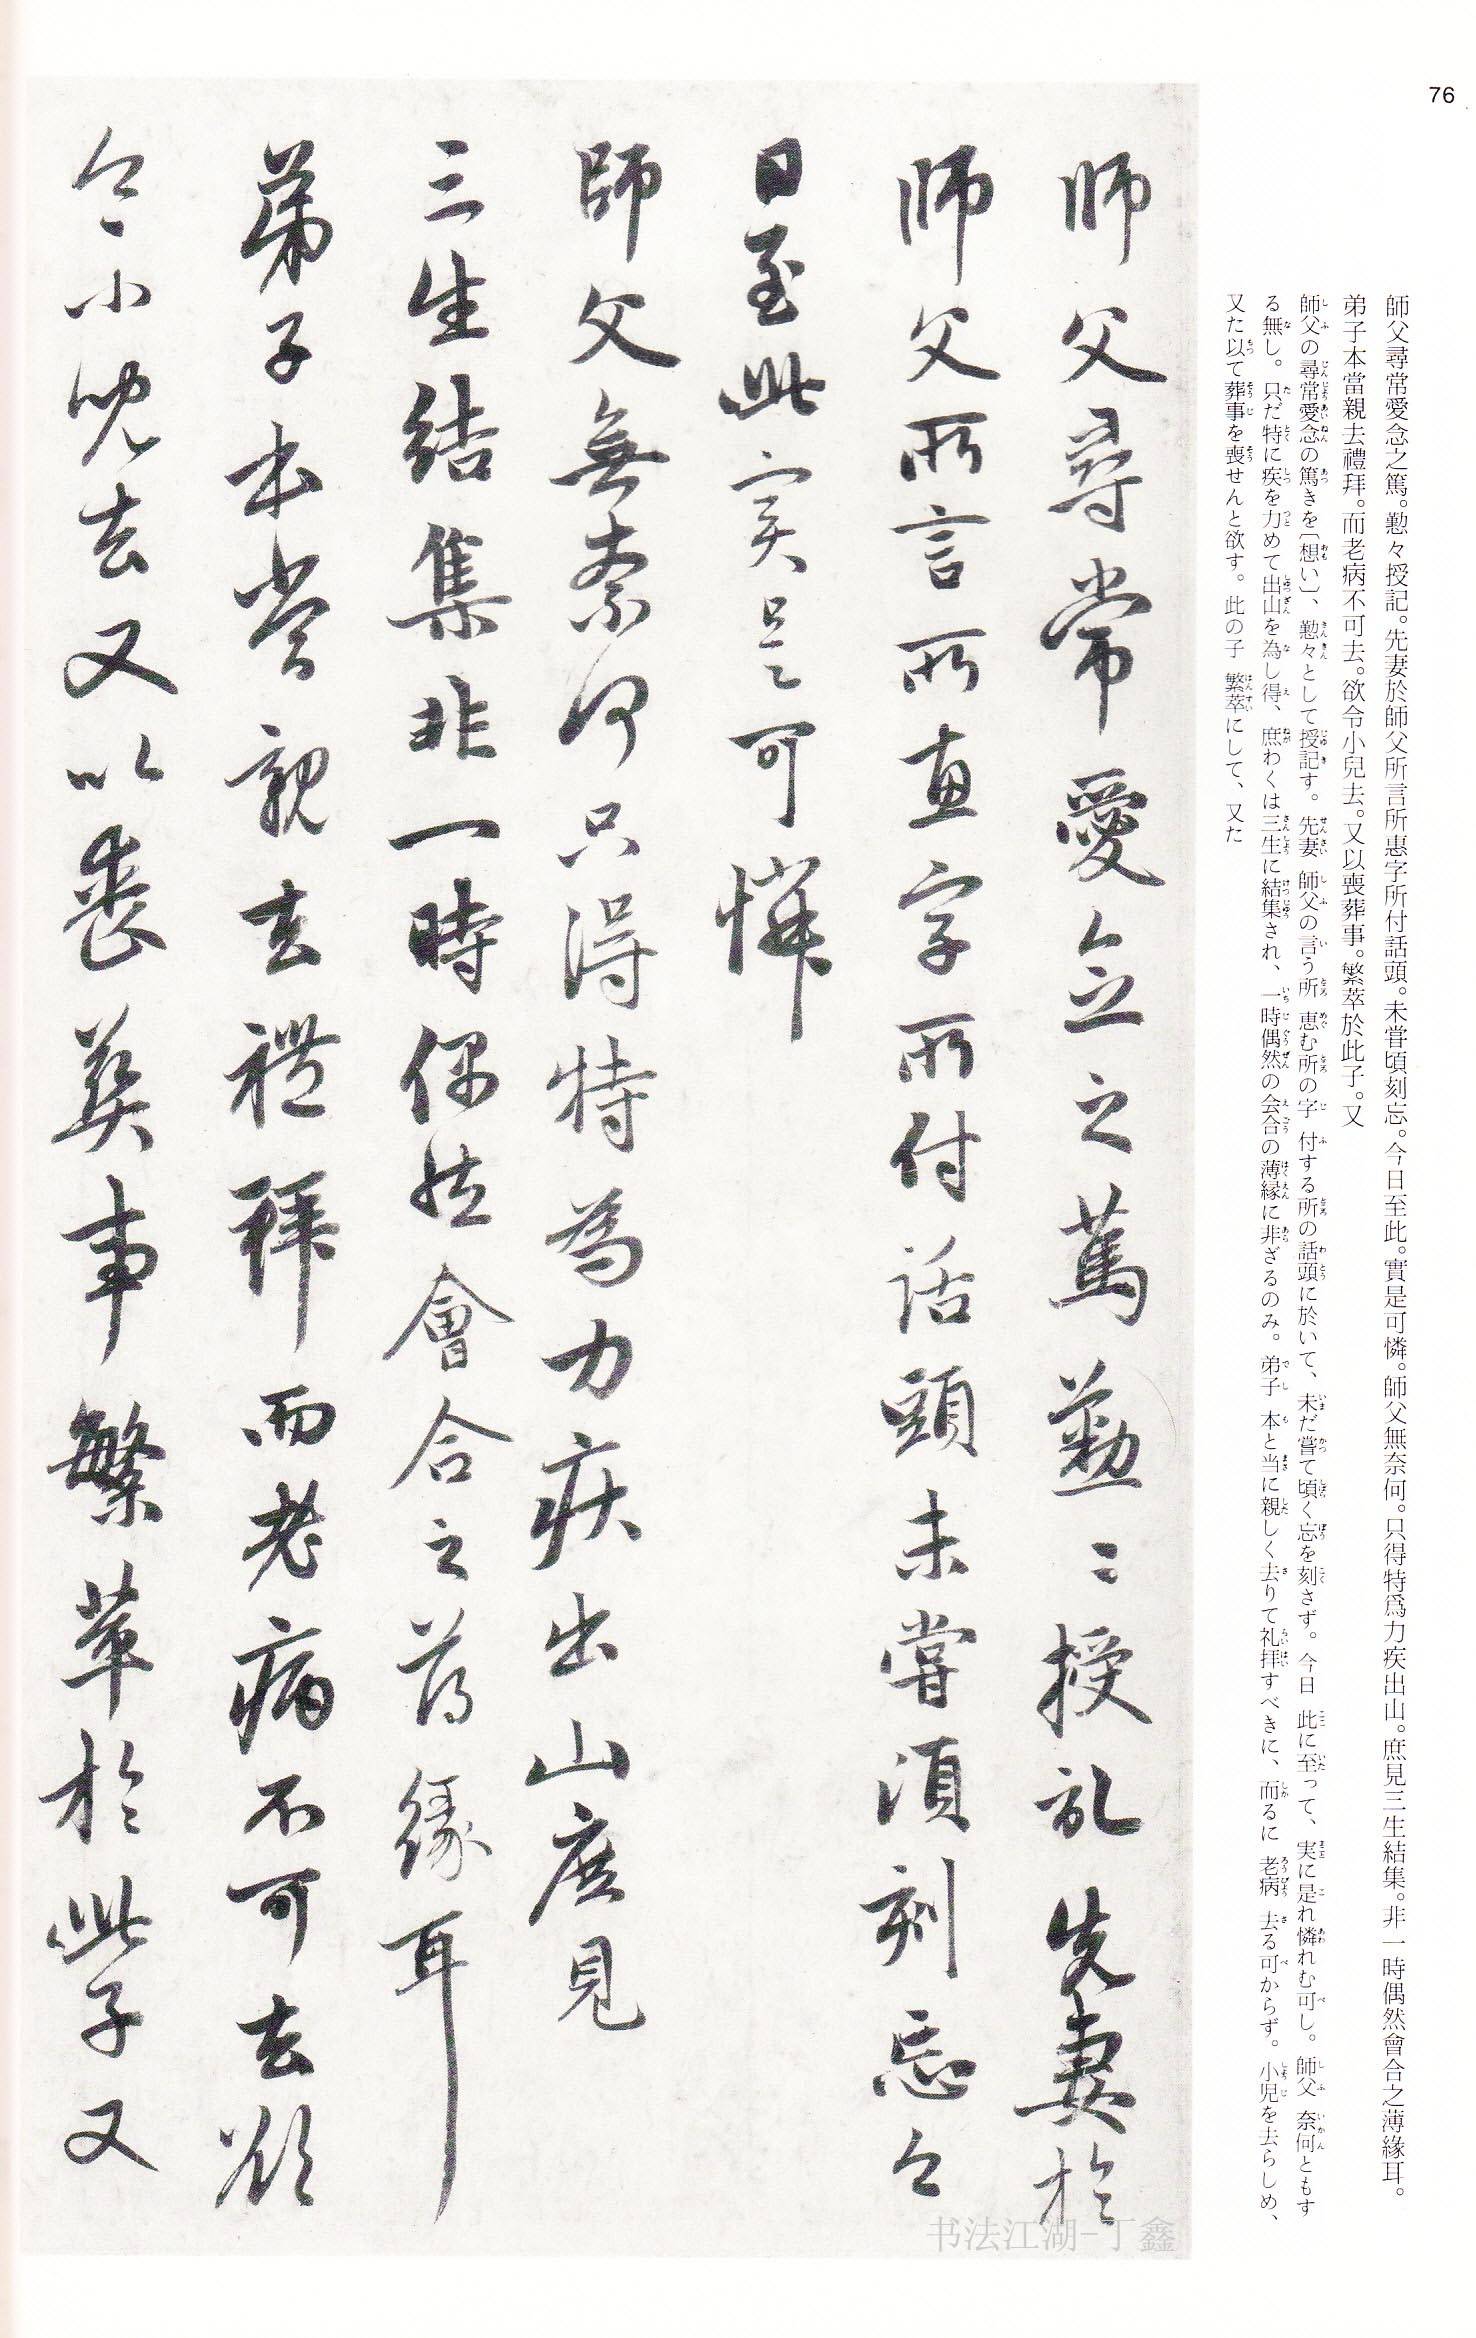 76
師父尋常愛念之篤。懃々授記。先妻於師父所言所惠字所付話頭。未甞頃刻忘。今日至此。實是可憐。師父無奈何。只得特爲力疾出山。庶見三生結集。非一時偶然會合之薄緣耳。
弟子本當親去禮拜。而老病不可去。欲令小兒去。又以喪葬事。繁萃於此子。又
師父の尋常愛念の篤きを〔想い〕、懃々として授記す。先妻 師父の言う所 惠む所の字 付する所の話頭に於いて、未だ嘗て頃く忘を刻さず。今日 此に至って、実に是れ憐れむ可し。師父 奈何ともす
る無し。只だ特に疾を力めて出山を為し得、庶わくは三生に結集され、一時偶然の会合の薄縁に非ざるのみ。弟子 本と当に親しく去りて礼拝すべきに、而るに 老病 去る可からず。小児を去らしめ、
又た以て葬事を喪せんと欲す。此の子 繁萃にして、又た
師父尋常愛念之篤懃〻授記先妻於
師父所言所惠字所付話頭未甞頃刻忘今
日至此實是可憐
師父無奈何只得特為力疾出山庶見
三生結集非一時偶然會合之薄緣耳
弟子本當親去禮拜而老病不可去欲
令小兒去又以喪葬事繁萃於此子又
书法江湖-丁鑫